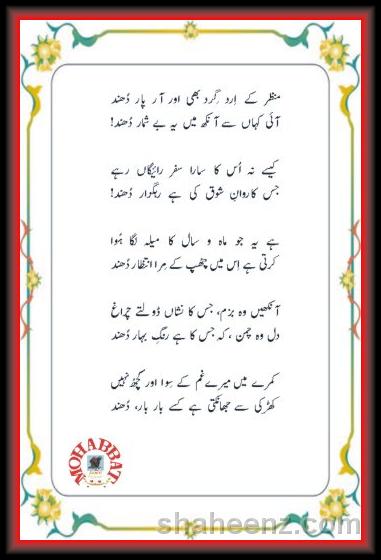 منظر کے اِرد گِرد بھی اور آر پار دُھند
آئی کہاں سے آنکھ میں یہ بے شمار دُھند!
کیسے نہ اُس کا سارا سفر رائیگاں رہے
جس کاروانِ شوق کی ہے رہگزار دُھند!
ہے یہ جو ماہ و سال کا میلہ لگا ہُوا
کرتی ہے اِس میں چھپ کے مِرا انتظار دُھند
آنکھیں وہ بزم، جس کا نشاں ڈولتے چراغ
دل وہ چمن، کہ جس کا ہے رنگِ بہار دُھند
کمرے میں میرے غم کے سِوا اور کُچھ نہیں
کھڑکی سے جھانکتی ہے کسے بار بار، دُھند
MOHABBAT
shaheenz.com